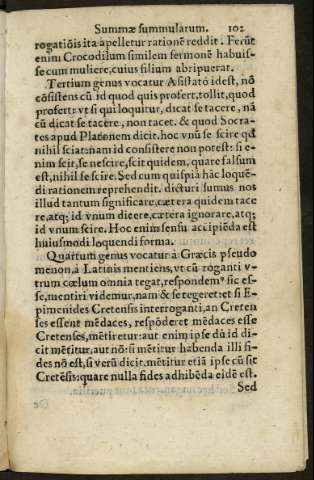 Summæ summularum. 102
rogatiõis ita apelletur rationẽ reddit. Ferũt
enim Crocodilum similem sermonẽ habuis-
se cum muliere, cuius filium abripuerat.
Tertium genus vocatur Asistatõ idest, nõ
cõsistens cũ id quod quis profert, tollit, quod
profert: vt si qui loquitur, dicat se tacere, nã
cũ dicat se tacere, non tacet. & quod Socra-
tes apud Platonem dicit. hoc vnũ se scire qđ
nihil sciat: nam id consistere non potest: si e-
nim scit, se nescire, scit quidem, quare falsum
est, nihil se scire. Sed cum quispiã hãc loquẽ-
di rationem reprehendit. dicturi sumus nos
illud tantum significare, cætera quidem tace
re, atq; id vnum dicere, cætera ignorare, atq;
id vnum scire. Hoc enim sensu accipiẽda est
huiusmodi loquendi forma.
Quartum genus vocatur á Græcis pseudo
menon, á Latinis mentiens, vt cũ roganti v-
trum cœlum omnia tegat, respondemꝰ sic es-
se, mentiri videmur, nam & se tegeret: et si E-
pimenides Cretensis interroganti, an Creten
ses essent mẽdaces, respõderet mẽdaces esse
Cretenses, mẽtiretur: aut enim ipse dũ id di-
cit mẽtitur, aut nõ: si mẽtitur habenda illi fi-
des nõ est, si verũ dicit, mẽtitur etiã ipse cũ sit
Cretẽsis: quare nulla fides adhibẽda eidẽ est.
Sed